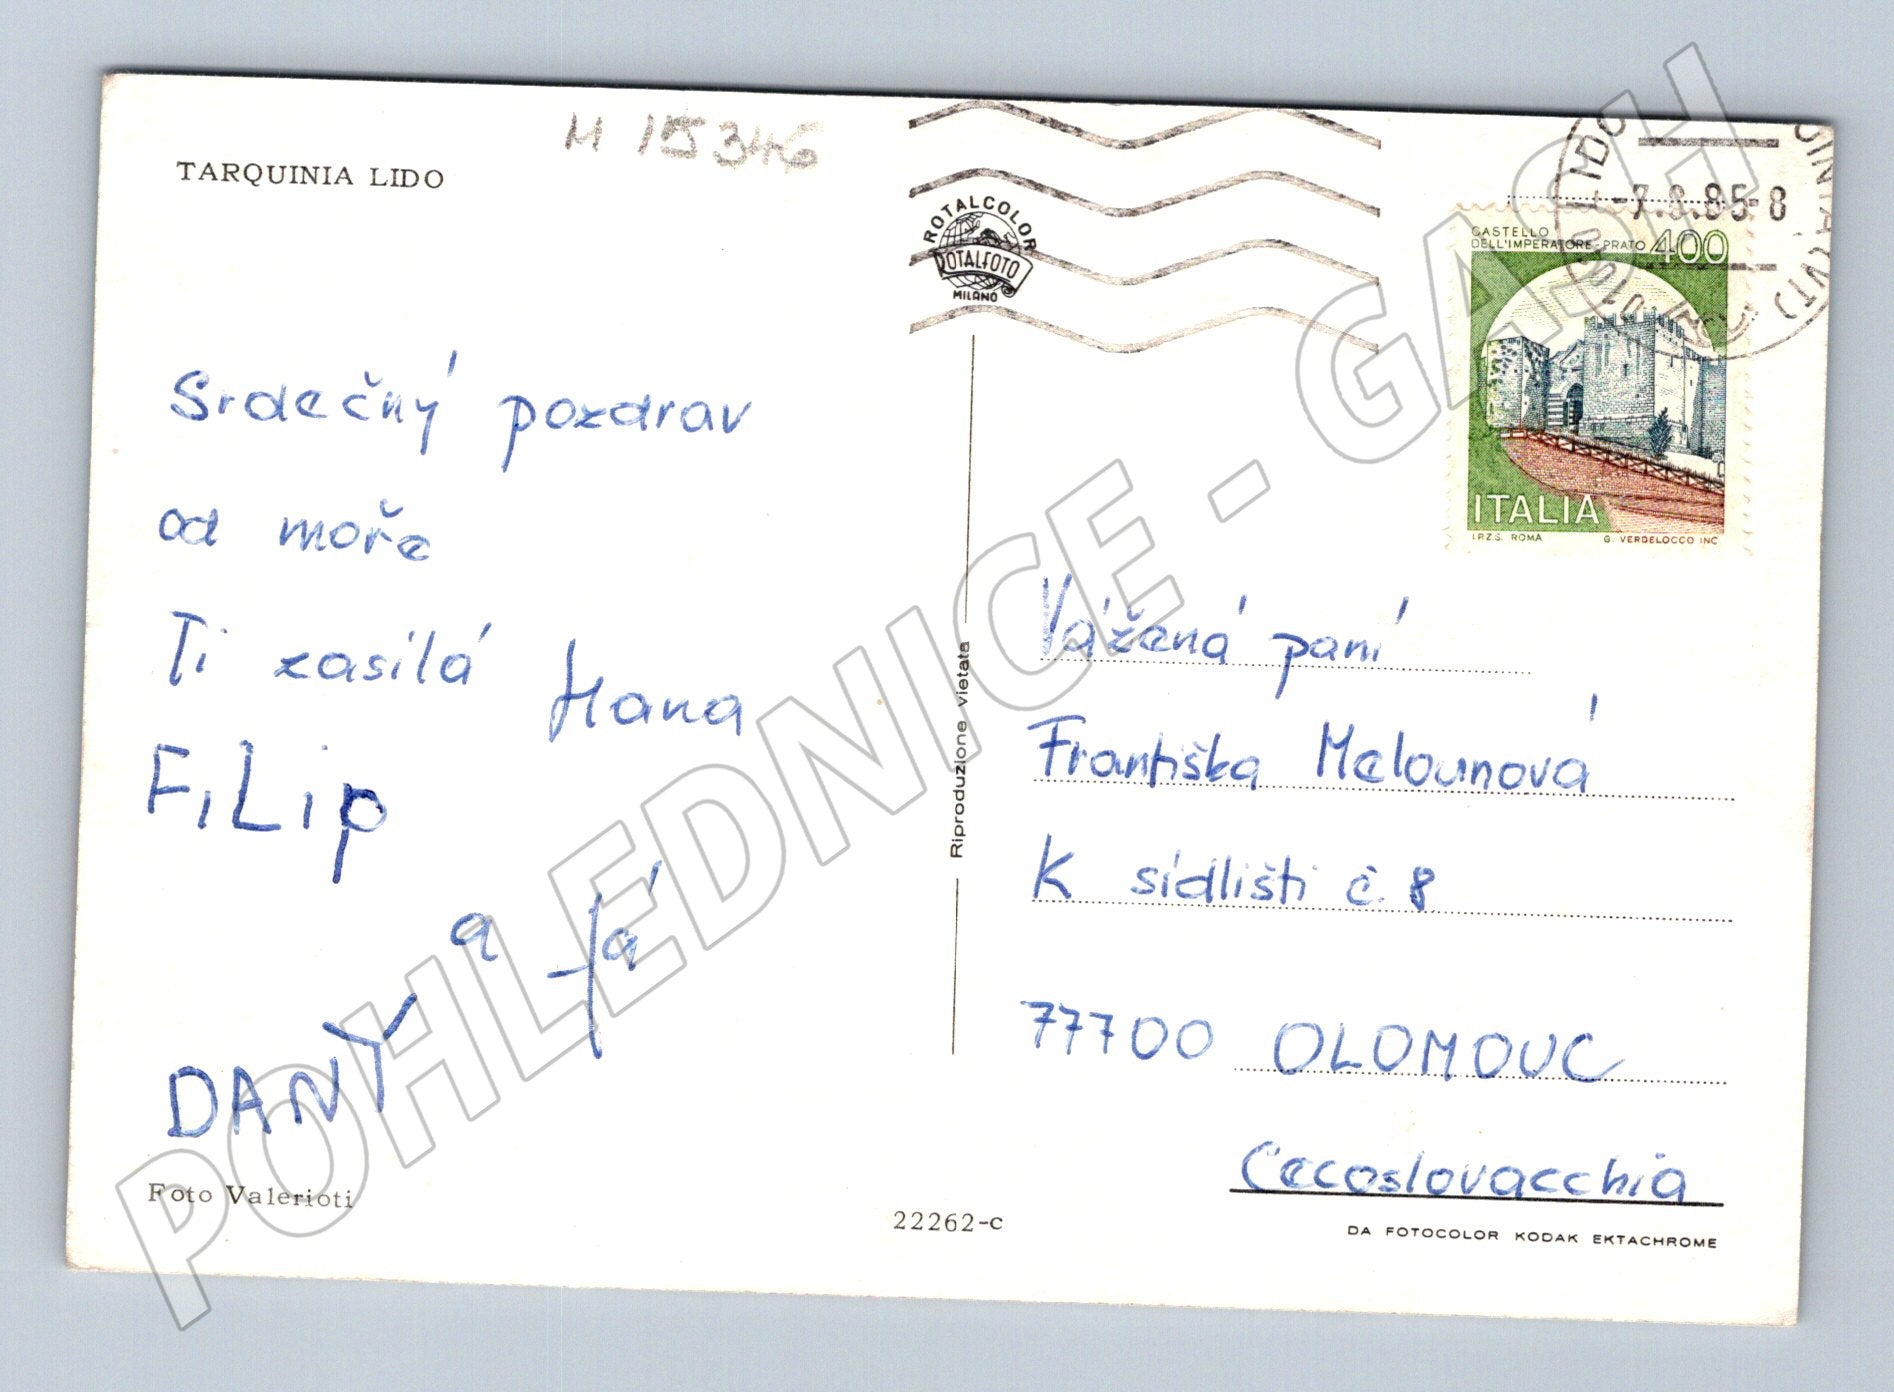 TARQUINIA LIDO
M 15346
Srdečný pozdrav
od moře
Ti zasílá Hana
FiLip
a já
DANY
Foto Valerioti
22262-c
ROTALCOLOR
ROTALFOTO
MILANO
Riproduzione vietata
-7.8.85-8
CASTELLO
DELL'IMPERATORE-PRATO 400
ITALIA
I.P.Z.S. ROMA G. VERDELOCCO INC
Vážená paní
Františka Melounová
K sídlišti č. 8
77700 OLOMOUC
Cecoslovacchia
DA FOTOCOLOR KODAK EKTACHROME
POHLEDNICE - GASH